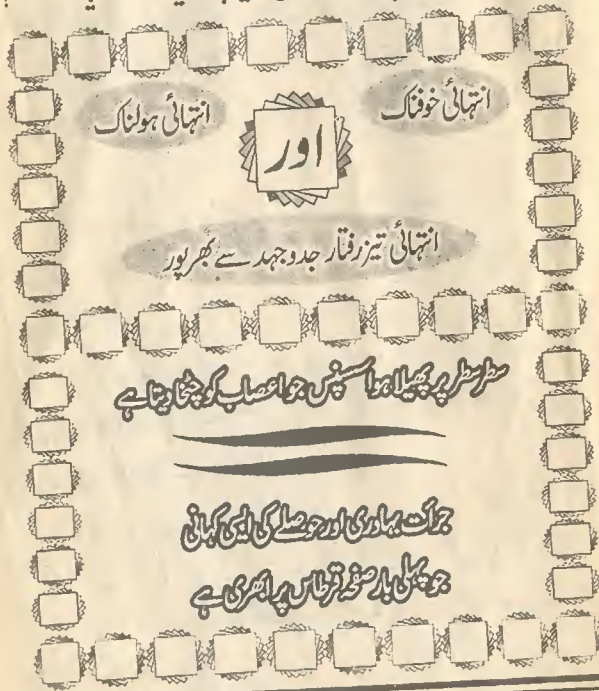 انتہائی خوفناک
اور
انتہائی ہولناک
انتہائی تیز رفتار جدوجہد سے بھرپور
سطر سطر پر پھیلا ہوا سسپنس جو اعصاب کو چٹخا دیتا ہے
جرأت بہادری اور حوصلے کی ایسی کہانی
جو پہلی بار صفحہ قرطاس پر ابھری ہے